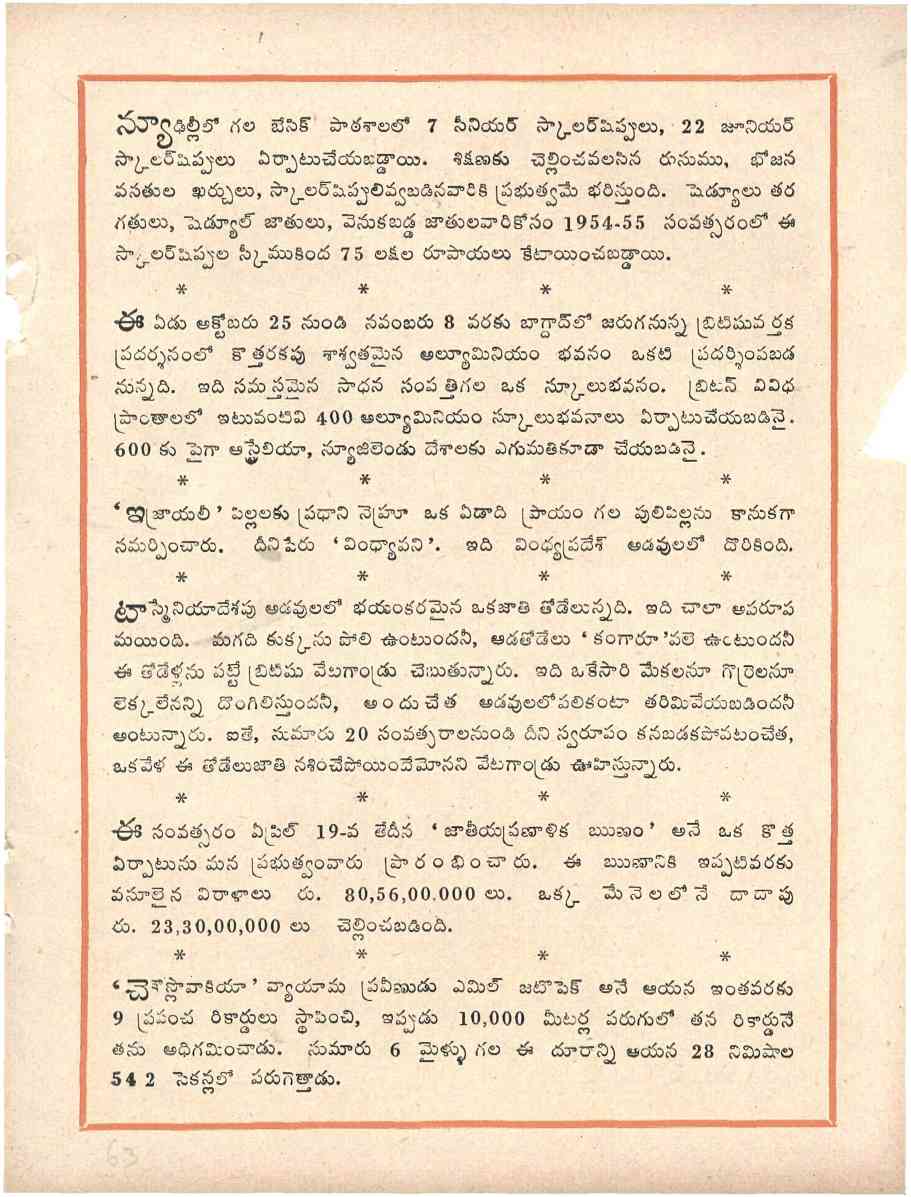 న్యూఢిల్లీలో గల బేసిక్ పాఠశాలలో 7 సీనియర్ స్కాలర్‌షిప్పులు, 22 జూనియర్
స్కాలర్‌షిప్పులు ఏర్పాటుచేయబడ్డాయి. శిక్షణకు చెల్లించవలసిన రుసుము, భోజన
వసతుల ఖర్చులు, స్కాలర్‌షిప్పులివ్వబడినవారికి ప్రభుత్వమే భరిస్తుంది. షెడ్యూలు తర
గతులు, షెడ్యూల్ జాతులు, వెనుకబడ్డ జాతులవారికోసం 1954-55 సంవత్సరంలో ఈ
స్కాలర్‌షిప్పుల స్కీముకింద 75 లక్షల రూపాయలు కేటాయించబడ్డాయి.
* * * *
ఈ ఏడు అక్టోబరు 25 నుండి నవంబరు 8 వరకు బాగ్దాద్‌లో జరుగనున్న బ్రిటిషువర్తక
ప్రదర్శనంలో కొత్తరకపు శాశ్వతమైన అల్యూమినియం భవనం ఒకటి ప్రదర్శింపబడ
నున్నది. ఇది సమస్తమైన సాధన సంపత్తిగల ఒక స్కూలుభవనం. బ్రిటన్ వివిధ
ప్రాంతాలలో ఇటువంటివి 400 అల్యూమినియం స్కూలుభవనాలు ఏర్పాటుచేయబడినై.
600 కు పైగా ఆస్ట్రేలియా, న్యూజిలెండు దేశాలకు ఎగుమతికూడా చేయబడినై.
* * * *
‘ఇజ్రాయలీ’ పిల్లలకు ప్రధాని నెహ్రూ ఒక ఏడాది ప్రాయం గల పులిపిల్లను కానుకగా
సమర్పించారు. దీనిపేరు ‘వింధ్యావని’. ఇది వింధ్యప్రదేశ్ అడవులలో దొరికింది.
* * * *
టాస్మేనియాదేశపు అడవులలో భయంకరమైన ఒకజాతి తోడేలున్నది. ఇది చాలా అపరూప
మయింది. మగది కుక్కను పోలి ఉంటుందనీ, ఆడతోడేలు ‘కంగారూ’వలె ఉంటుందనీ
ఈ తోడేళ్లను పట్టే బ్రిటిషు వేటగాండ్రు చెబుతున్నారు. ఇది ఒకేసారి మేకలనూ గొర్రెలనూ
లెక్కలేనన్ని దొంగిలిస్తుందనీ, అందుచేత అడవులలోపలికంటా తరిమివేయబడిందనీ
అంటున్నారు. ఐతే, సుమారు 20 సంవత్సరాలనుండి దీని స్వరూపం కనబడకపోవటంచేత,
ఒకవేళ ఈ తోడేలుజాతి నశించేపోయిందేమోనని వేటగాండ్రు ఊహిస్తున్నారు.
* * * *
ఈ సంవత్సరం ఏప్రిల్ 19-వ తేదీన ‘జాతీయప్రణాళిక ఋణం’ అనే ఒక కొత్త
ఏర్పాటును మన ప్రభుత్వంవారు ప్రారంభించారు. ఈ ఋణానికి ఇప్పటివరకు
వసూలైన విరాళాలు రు. 80,56,00.000 లు. ఒక్క మేనెలలోనే దాదాపు
రు. 23,30,00,000 లు చెల్లించబడింది.
* * * *
‘చెకోస్లొవాకియా’ వ్యాయామ ప్రవీణుడు ఎమిల్ జటొపెక్ అనే ఆయన ఇంతవరకు
9 ప్రపంచ రికార్డులు స్థాపించి, ఇప్పుడు 10,000 మీటర్ల పరుగులో తన రికార్డునే
తను అధిగమించాడు. సుమారు 6 మైళ్ళు గల ఈ దూరాన్ని ఆయన 28 నిమిషాల
54 2 సెకన్లలో పరుగెత్తాడు.
63